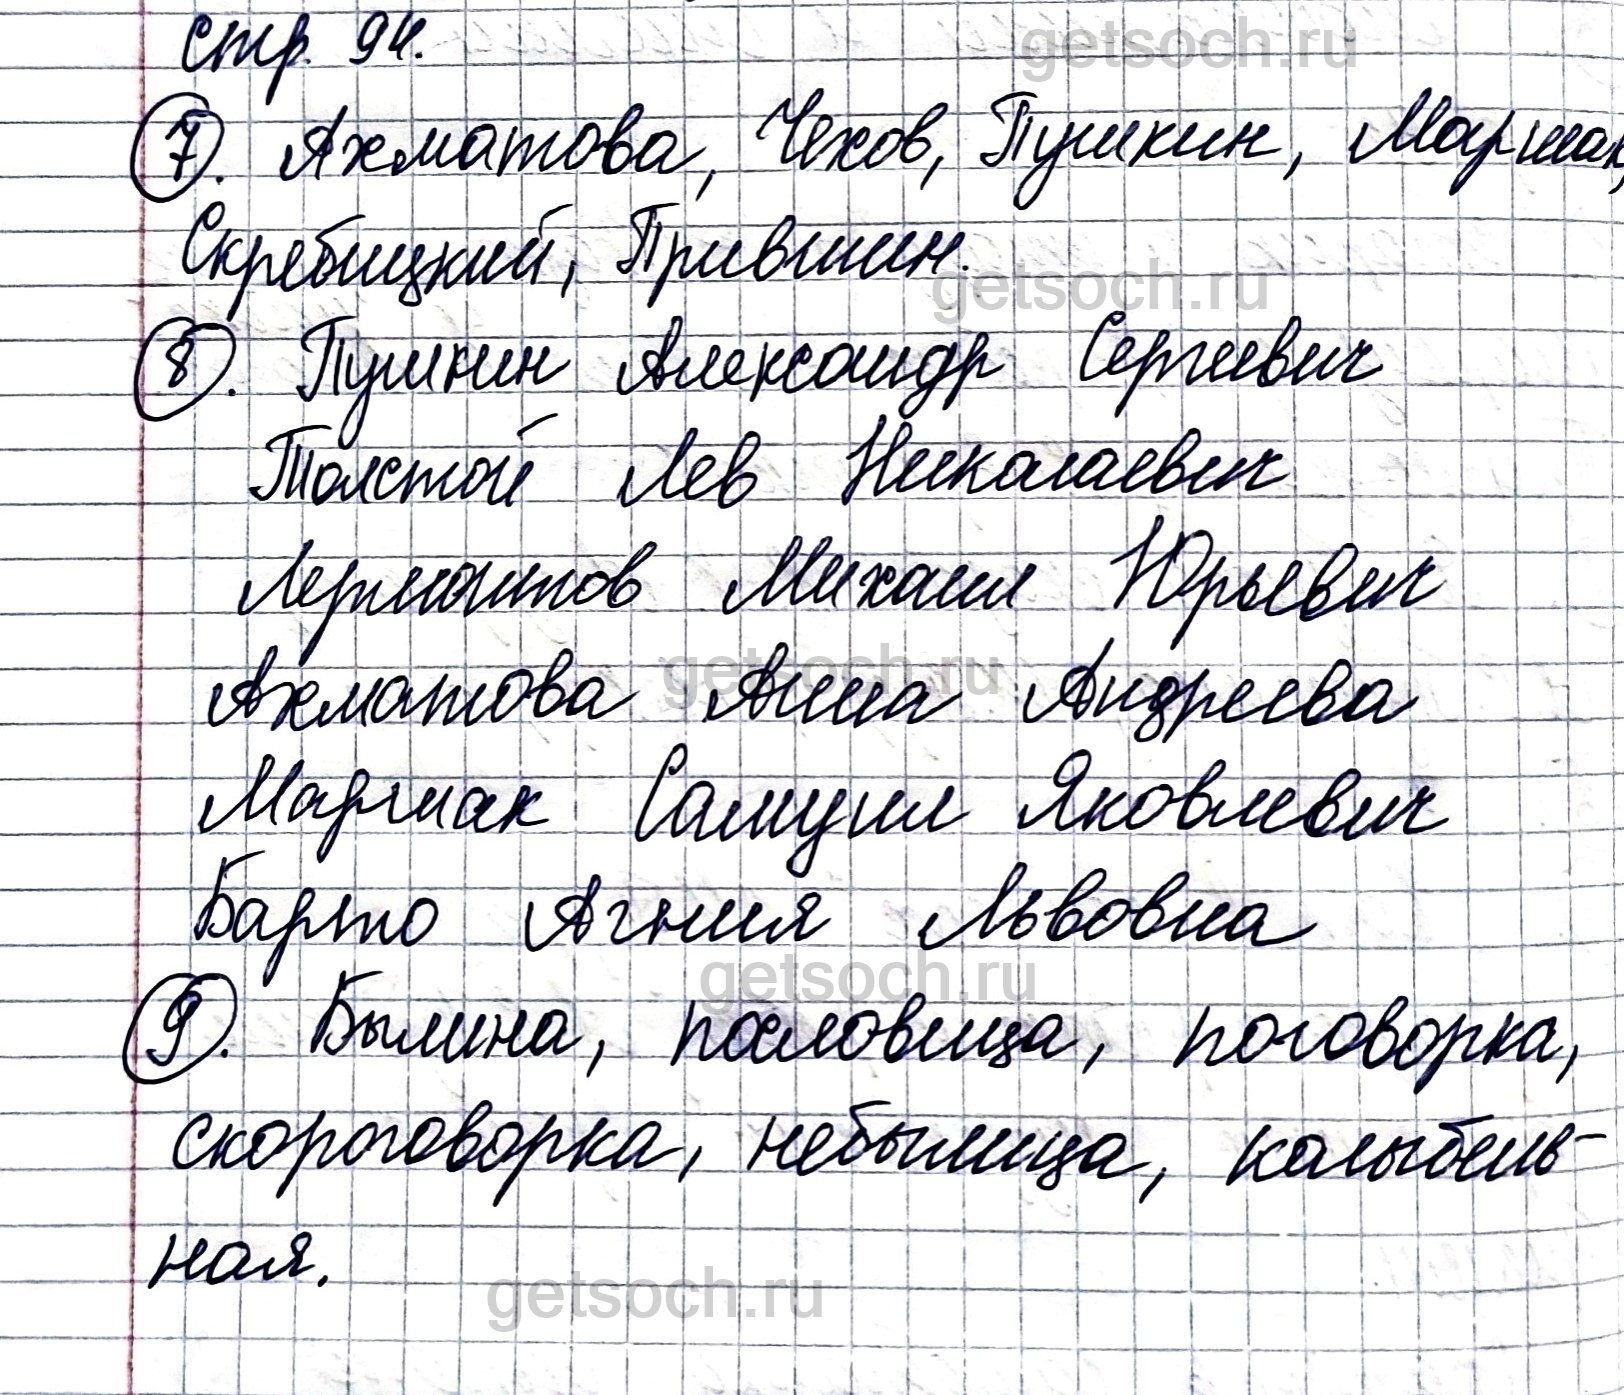 стр. 94.
getsoch.ru
7. Ахматова, Чехов, Пушкин, Маршак,
Скребицкий, Пришвин.
getsoch.ru
8. Пушкин Александр Сергеевич
Толстой Лев Николаевич
Лермонтов Михаил Юрьевич
getsoch.ru
Ахматова Анна Андреева
Маршак Самуил Яковлевич
Барто Агния Львовна
getsoch.ru
9. Былина, пословица, поговорка,
скороговорка, небылица, колыбель-
ная.
getsoch.ru